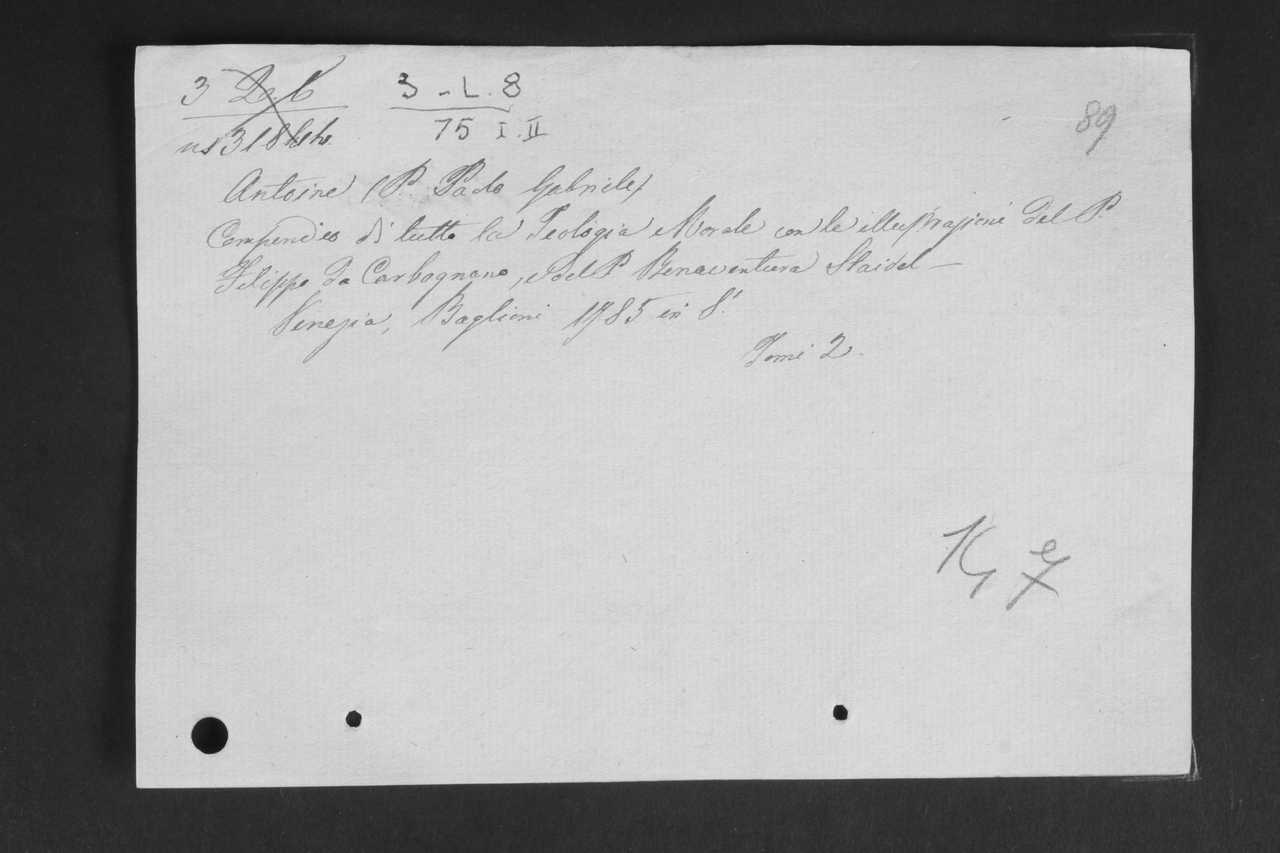 3 L. 6
3 - L. 8
75 I. II
89
Antoine (P. Paolo Gabriele)
Compendio di tutta la Teologia Morale con le illustrazioni del P.
Filippo da Carbognano, e del P. Benaventura Staidel —
Venezia, Baglioni 1785 in 8.°
Tomi 2.